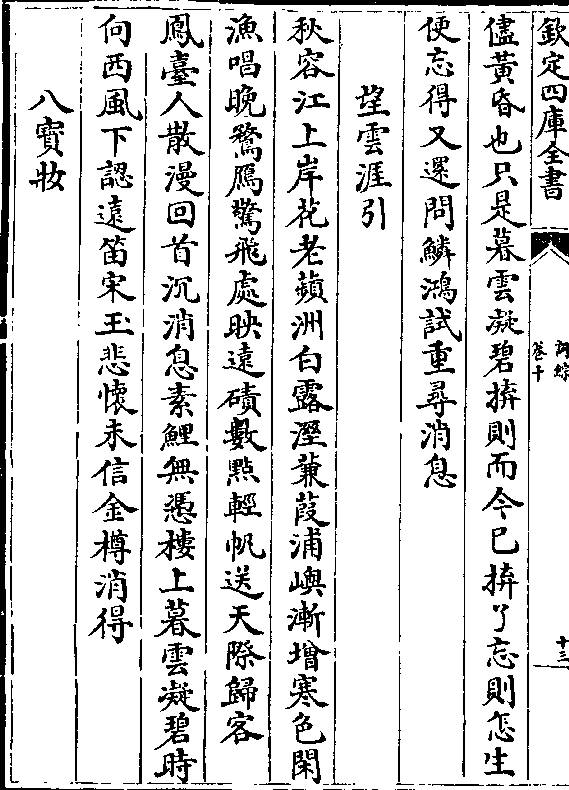 欽定四庫全書
詞綜
卷十
十三
儘黃昏也只是暮雲凝碧拚則而今已拚了忘則怎生
便忘得又還問鱗鴻試重尋消息
望雲涯引
秋容江上岸花老蘋洲白露溼蒹葭浦嶼漸增寒色閑
漁唱晚鶩鴈驚飛處映遠磧數點輕帆送天際歸客
鳳臺人散漫回首沉消息素鯉無憑樓上暮雲凝碧時
向西風下認遠笛宋玉悲懷未信金樽消得
八寶妝